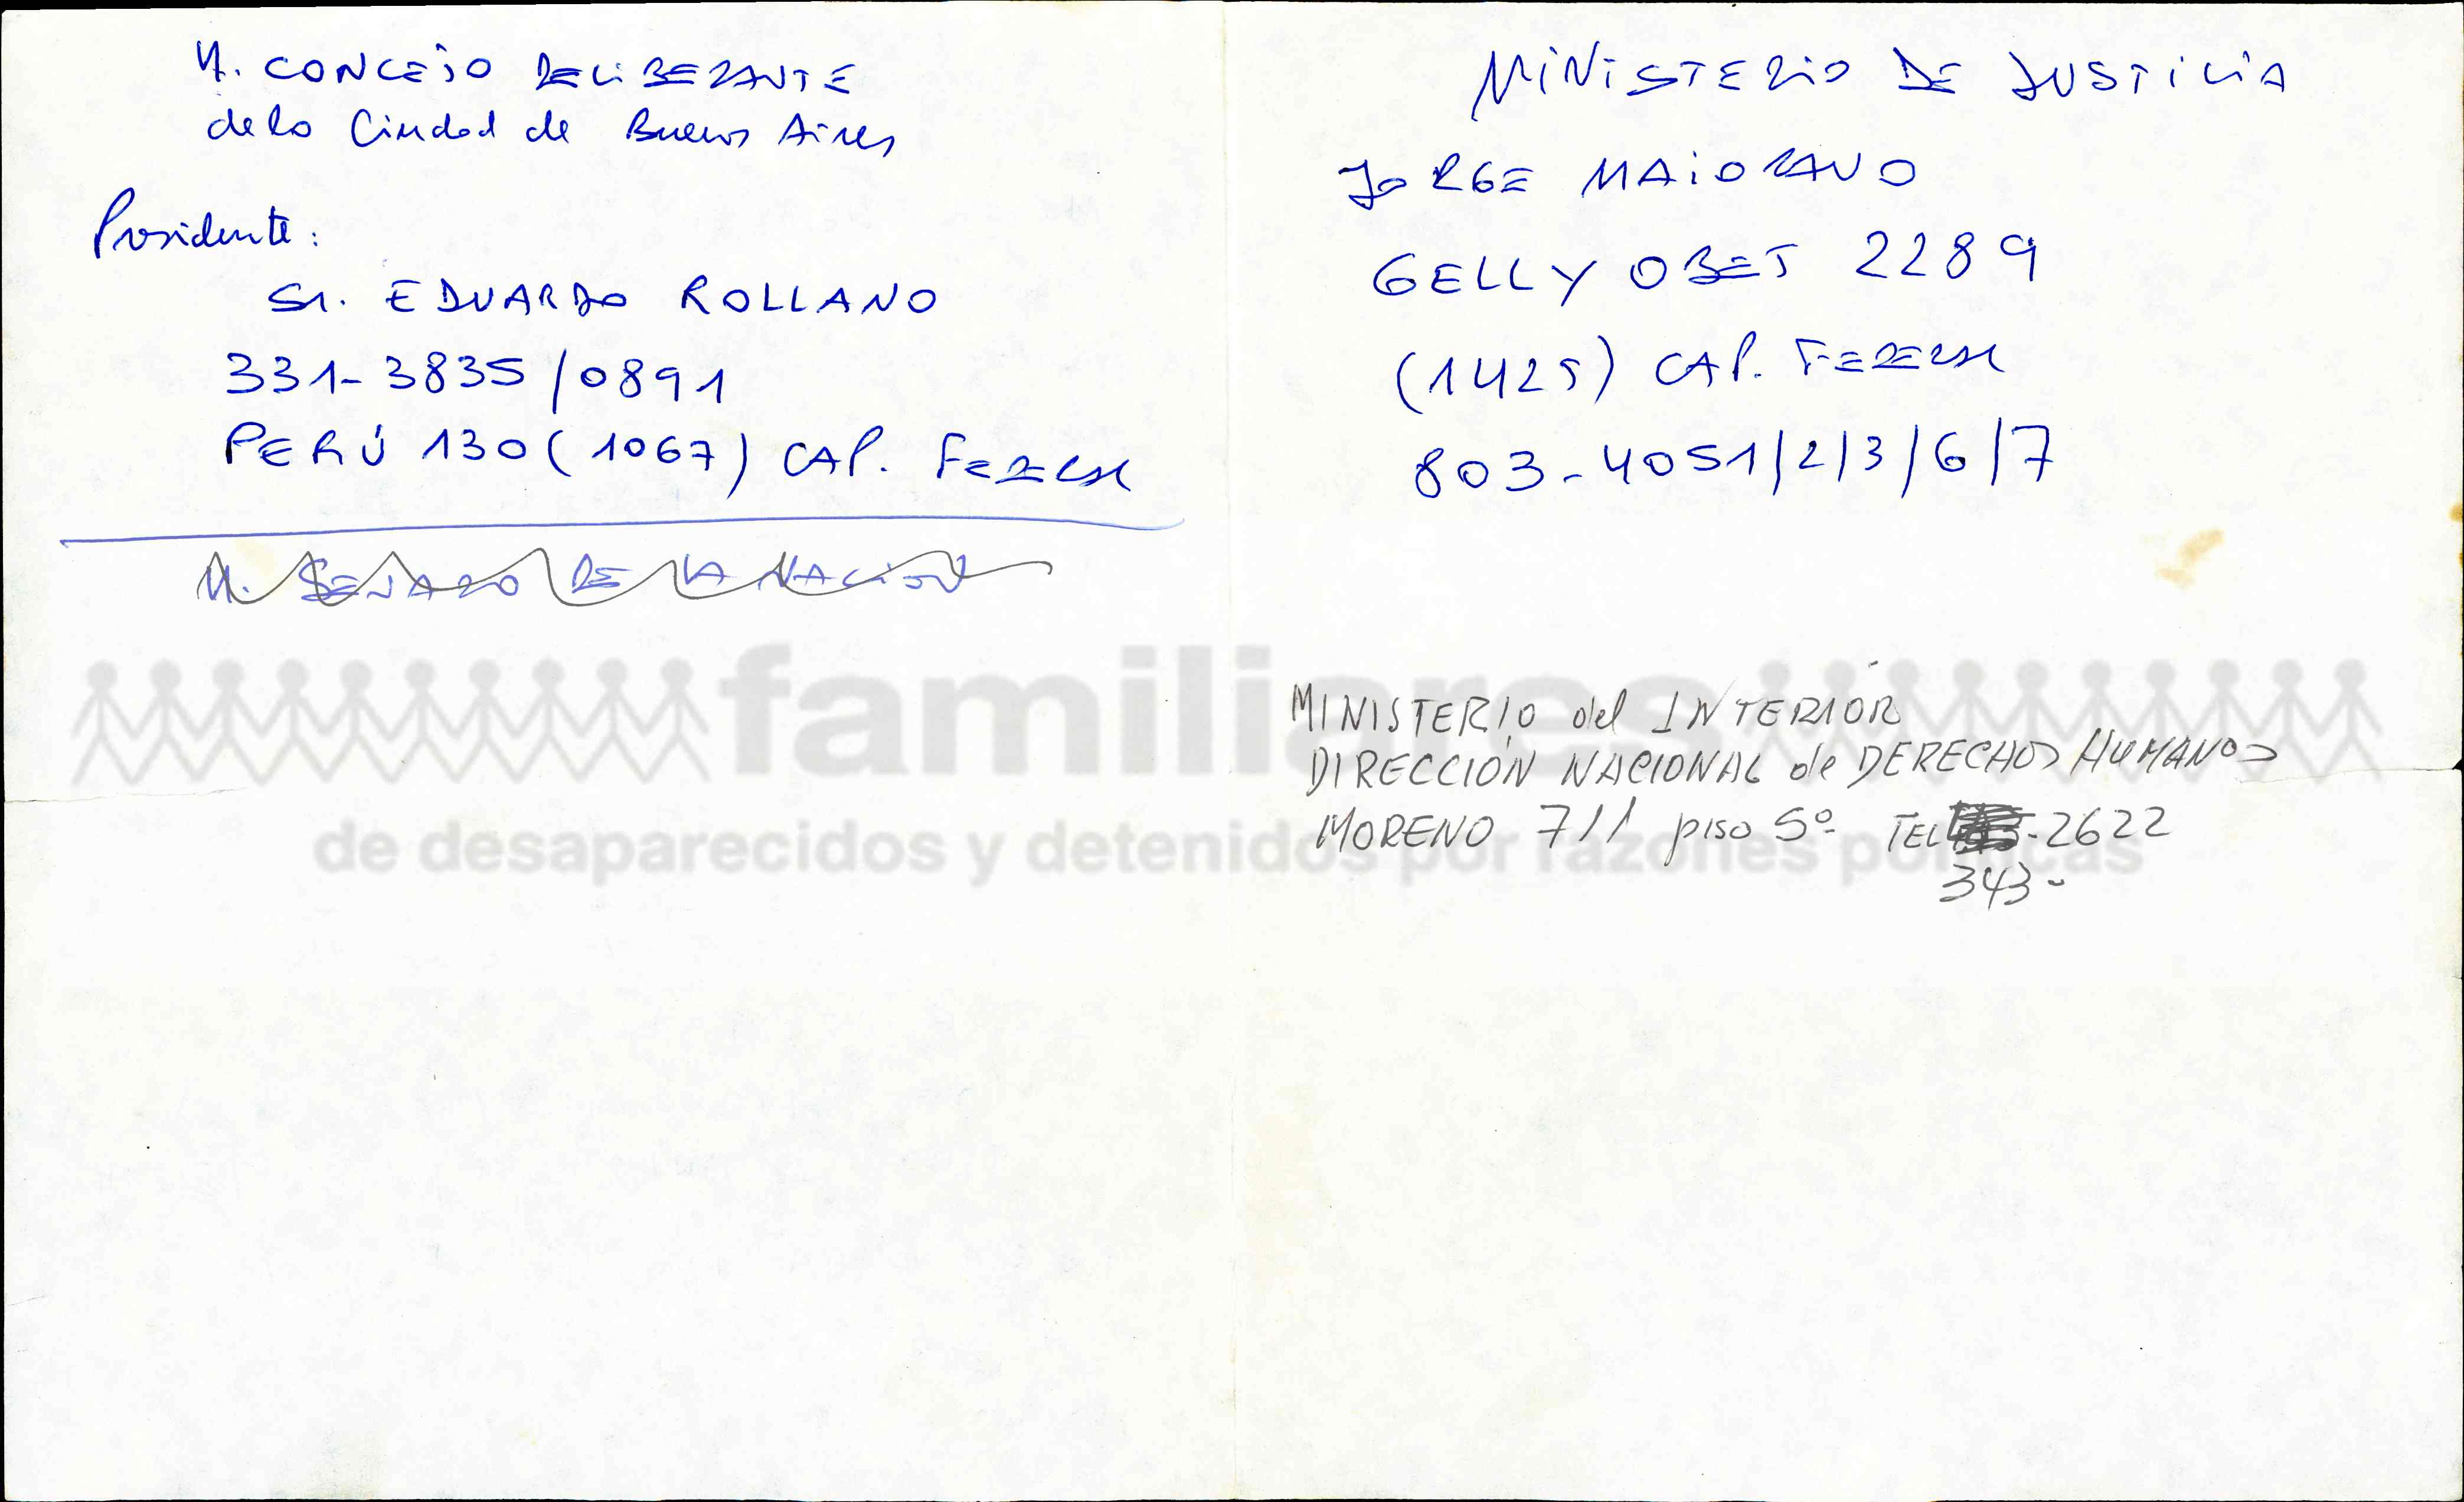 H. CONCEJO DELIBERANTE
de la Ciudad de Buenos Aires
Presidente:
Sr. EDUARDO ROLLANO
331-3835/0891
PERÚ 130 (1067) CAP. FEDERAL
H. SENADO DE LA NACION
MINISTERIO DE JUSTICIA
JORGE MAIORANO
GELLY OBES 2289
(1425) CAP. FEDERAL
803-4051/2/3/6/7
MINISTERIO del INTERIOR
DIRECCIÓN NACIONAL de DERECHOS HUMANOS
MORENO 711 piso 5º TEL -2622
343-
familiares
de desaparecidos y detenidos por razones políticas